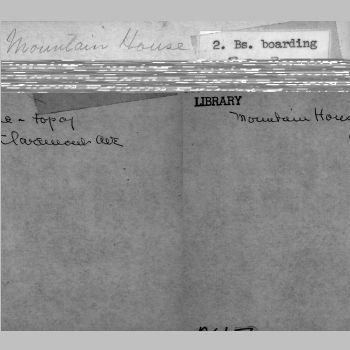 Mountain House
2. Bs. boarding
LIBRARY
Mountain Hous
e - topog
Claremont Ave